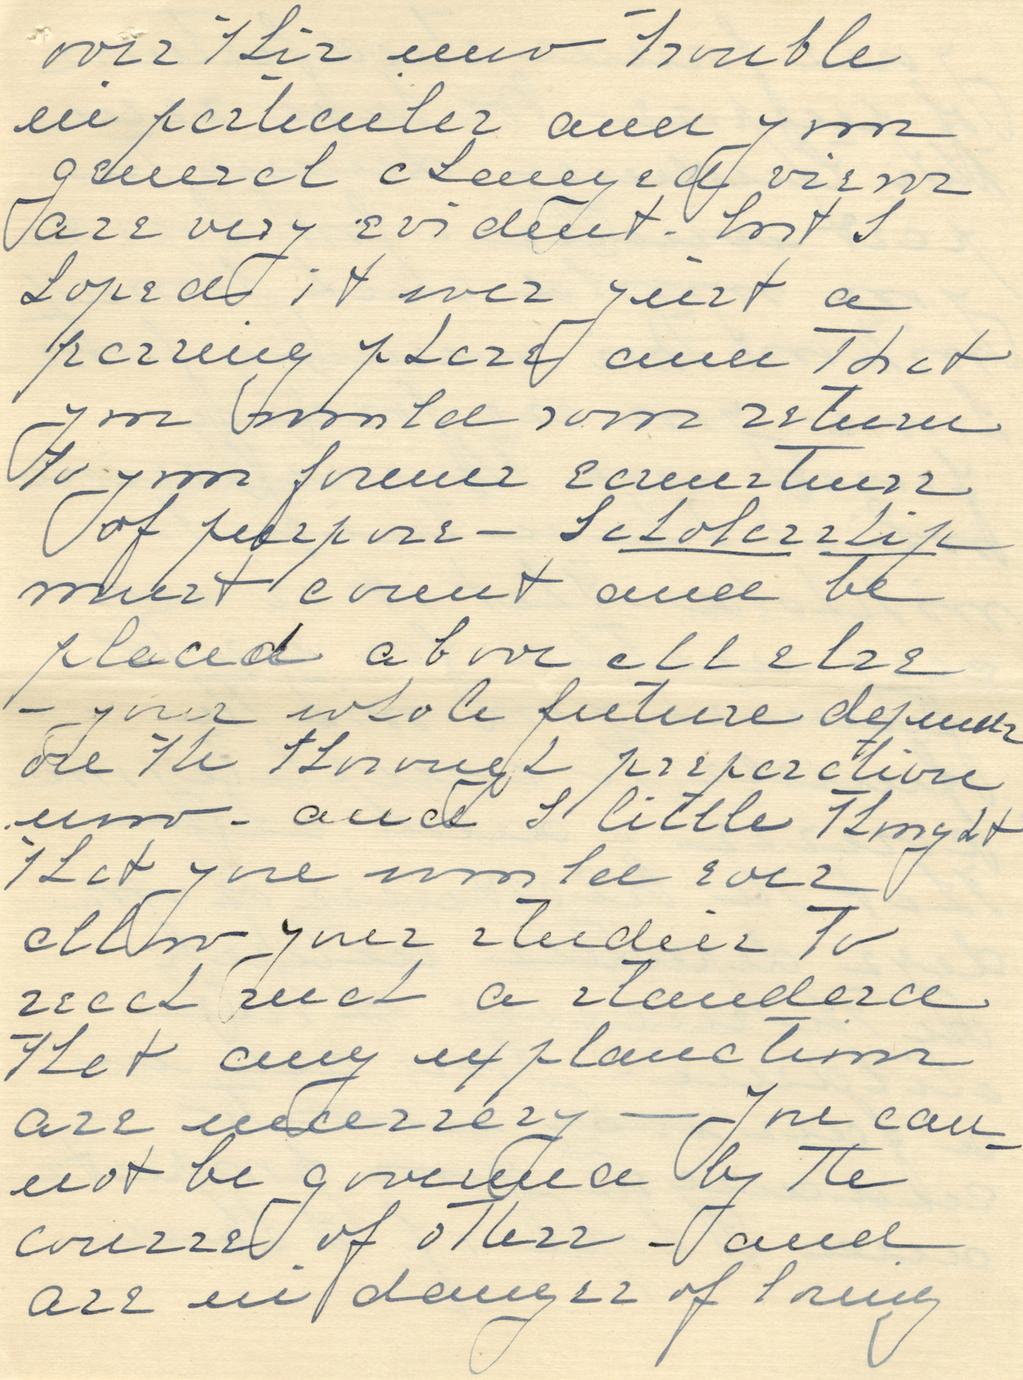 over this new trouble
in particular and your
general changed views
are very evident. but I
hoped it was just a
passing phase and that
you would soon return
to your former earnestness
of purpose - Scholarship
must count and be
placed above all else
- your whole future depends
on the thorough preparation
now - and I little thought
that you would ever
allow your studies to
reach such a standard
that any explanations
are necessary — You can-
not be governed by the
courses of others - and
are in danger of losing